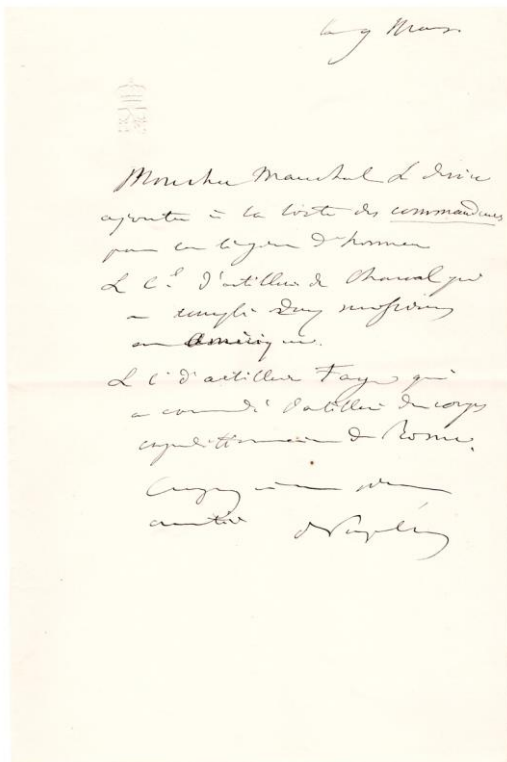 le 9 Mars
Mon cher Maréchal Je désire
ajouter à la liste des commandeurs
pour la légion d'honneur
Le Cel d'artillerie de Chanal qui
a rempli deux missions
en Amérique.
Le Cel d'artillerie Faye qui
a commandé l'artillerie du corps
expéditionnaire de Rome.
Croyez à ma
amitié Napoléon